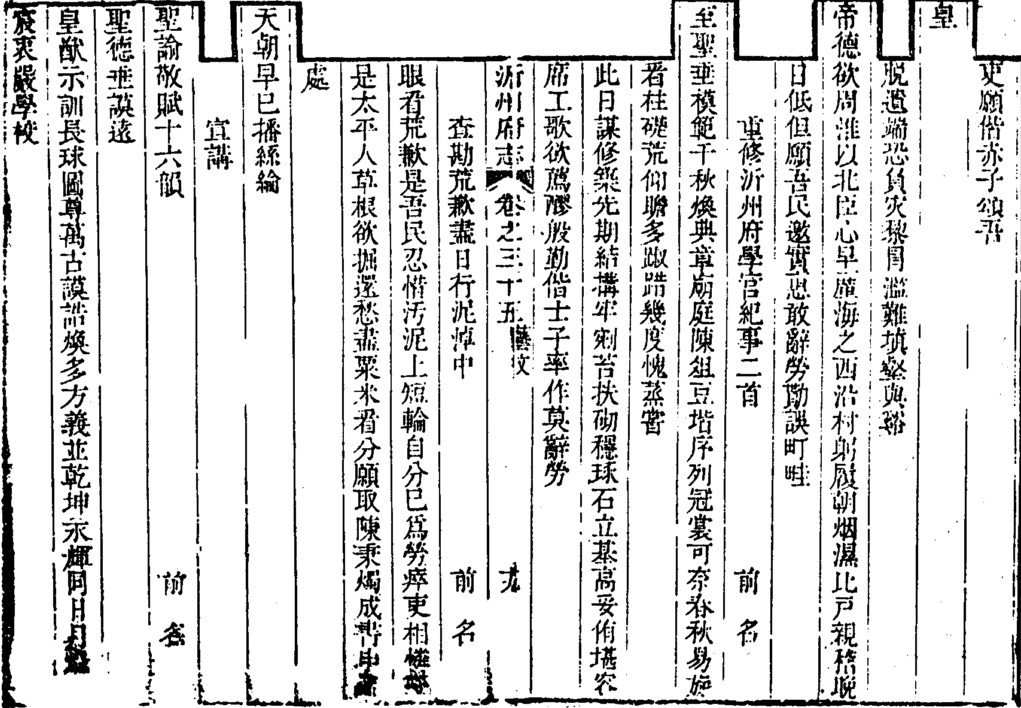 吏願偕赤子頌吾
皇
脫還端恐負災黎胃濫難塡壑與谿
帝德欲周淮以北臣心早廑海之西沿村躬履朝烟濕比戸親稽晚
日低但願吾民邀實惠敢辭勞勩誤町畦
重修沂州府學宫紀事二首 前名
至聖垂模範千秋煥典章廟庭陳俎豆堦序列冠裳可奈春秋易旋
看柱礎荒仰瞻多踧踖幾度愧蒸嘗
此日謀修築先期結搆牢剜苔扶砌穩琢石立基高妥侑堪容
席工歌欲薦醪般勤偕士子率作莫辭勞
沂州府志 卷之三十五 藝文 尤
查勘荒歉盡日行泥淖中 前名
眼看荒歉是吾民忍惜汚泥上短輪自分已爲勞瘁吏相
是太平人草根欲掘還愁盡粟米看分願取陳秉燭成
處
天朝早已播絲綸
宣講
聖諭敬賦十六韻 前名
聖德垂謨遠
皇猷示訓長球圖尊萬古謨誥煥多方義並乾坤永輝同日月
宸衷嚴學校